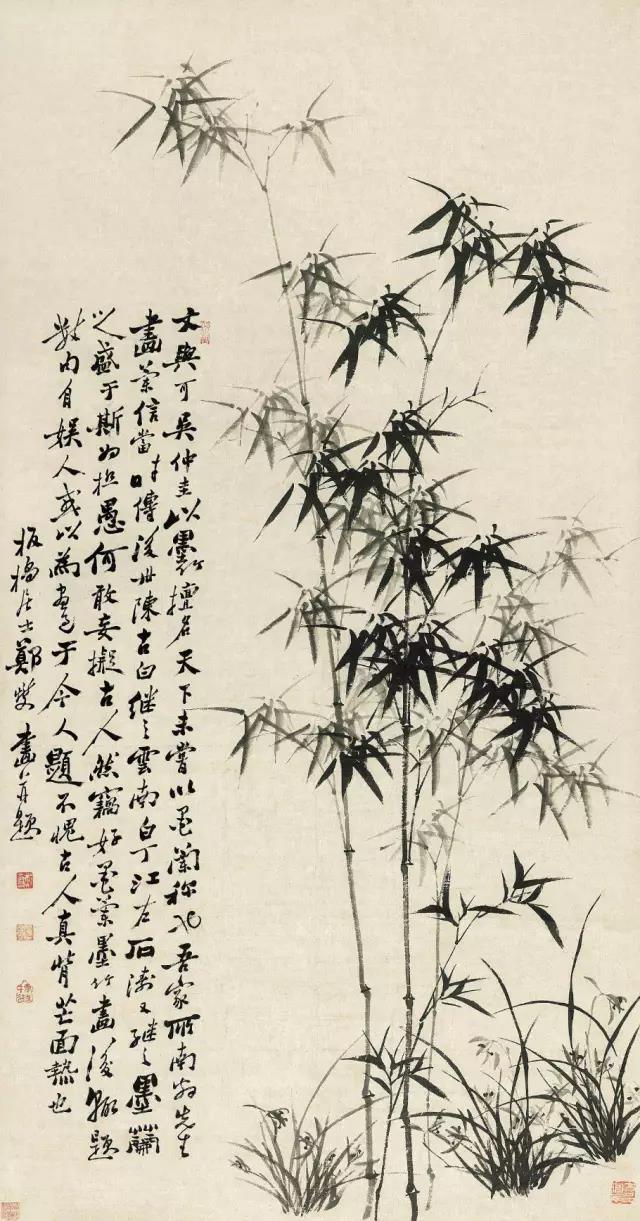 文與可吳仲圭以墨竹擅名天下未嘗以墨蘭稱也吾家所南翁先生
畫蘭信當時傳後世陳古白繼之雲南白丁江左石濤又繼之墨蘭
之盛于斯為極愚何敢妄擬古人然竊好墨蘭墨竹畫後輒題
數句自娛人或以為畫過于今人題不愧古人真背芒面熱也
板橋居士鄭燮畫并題